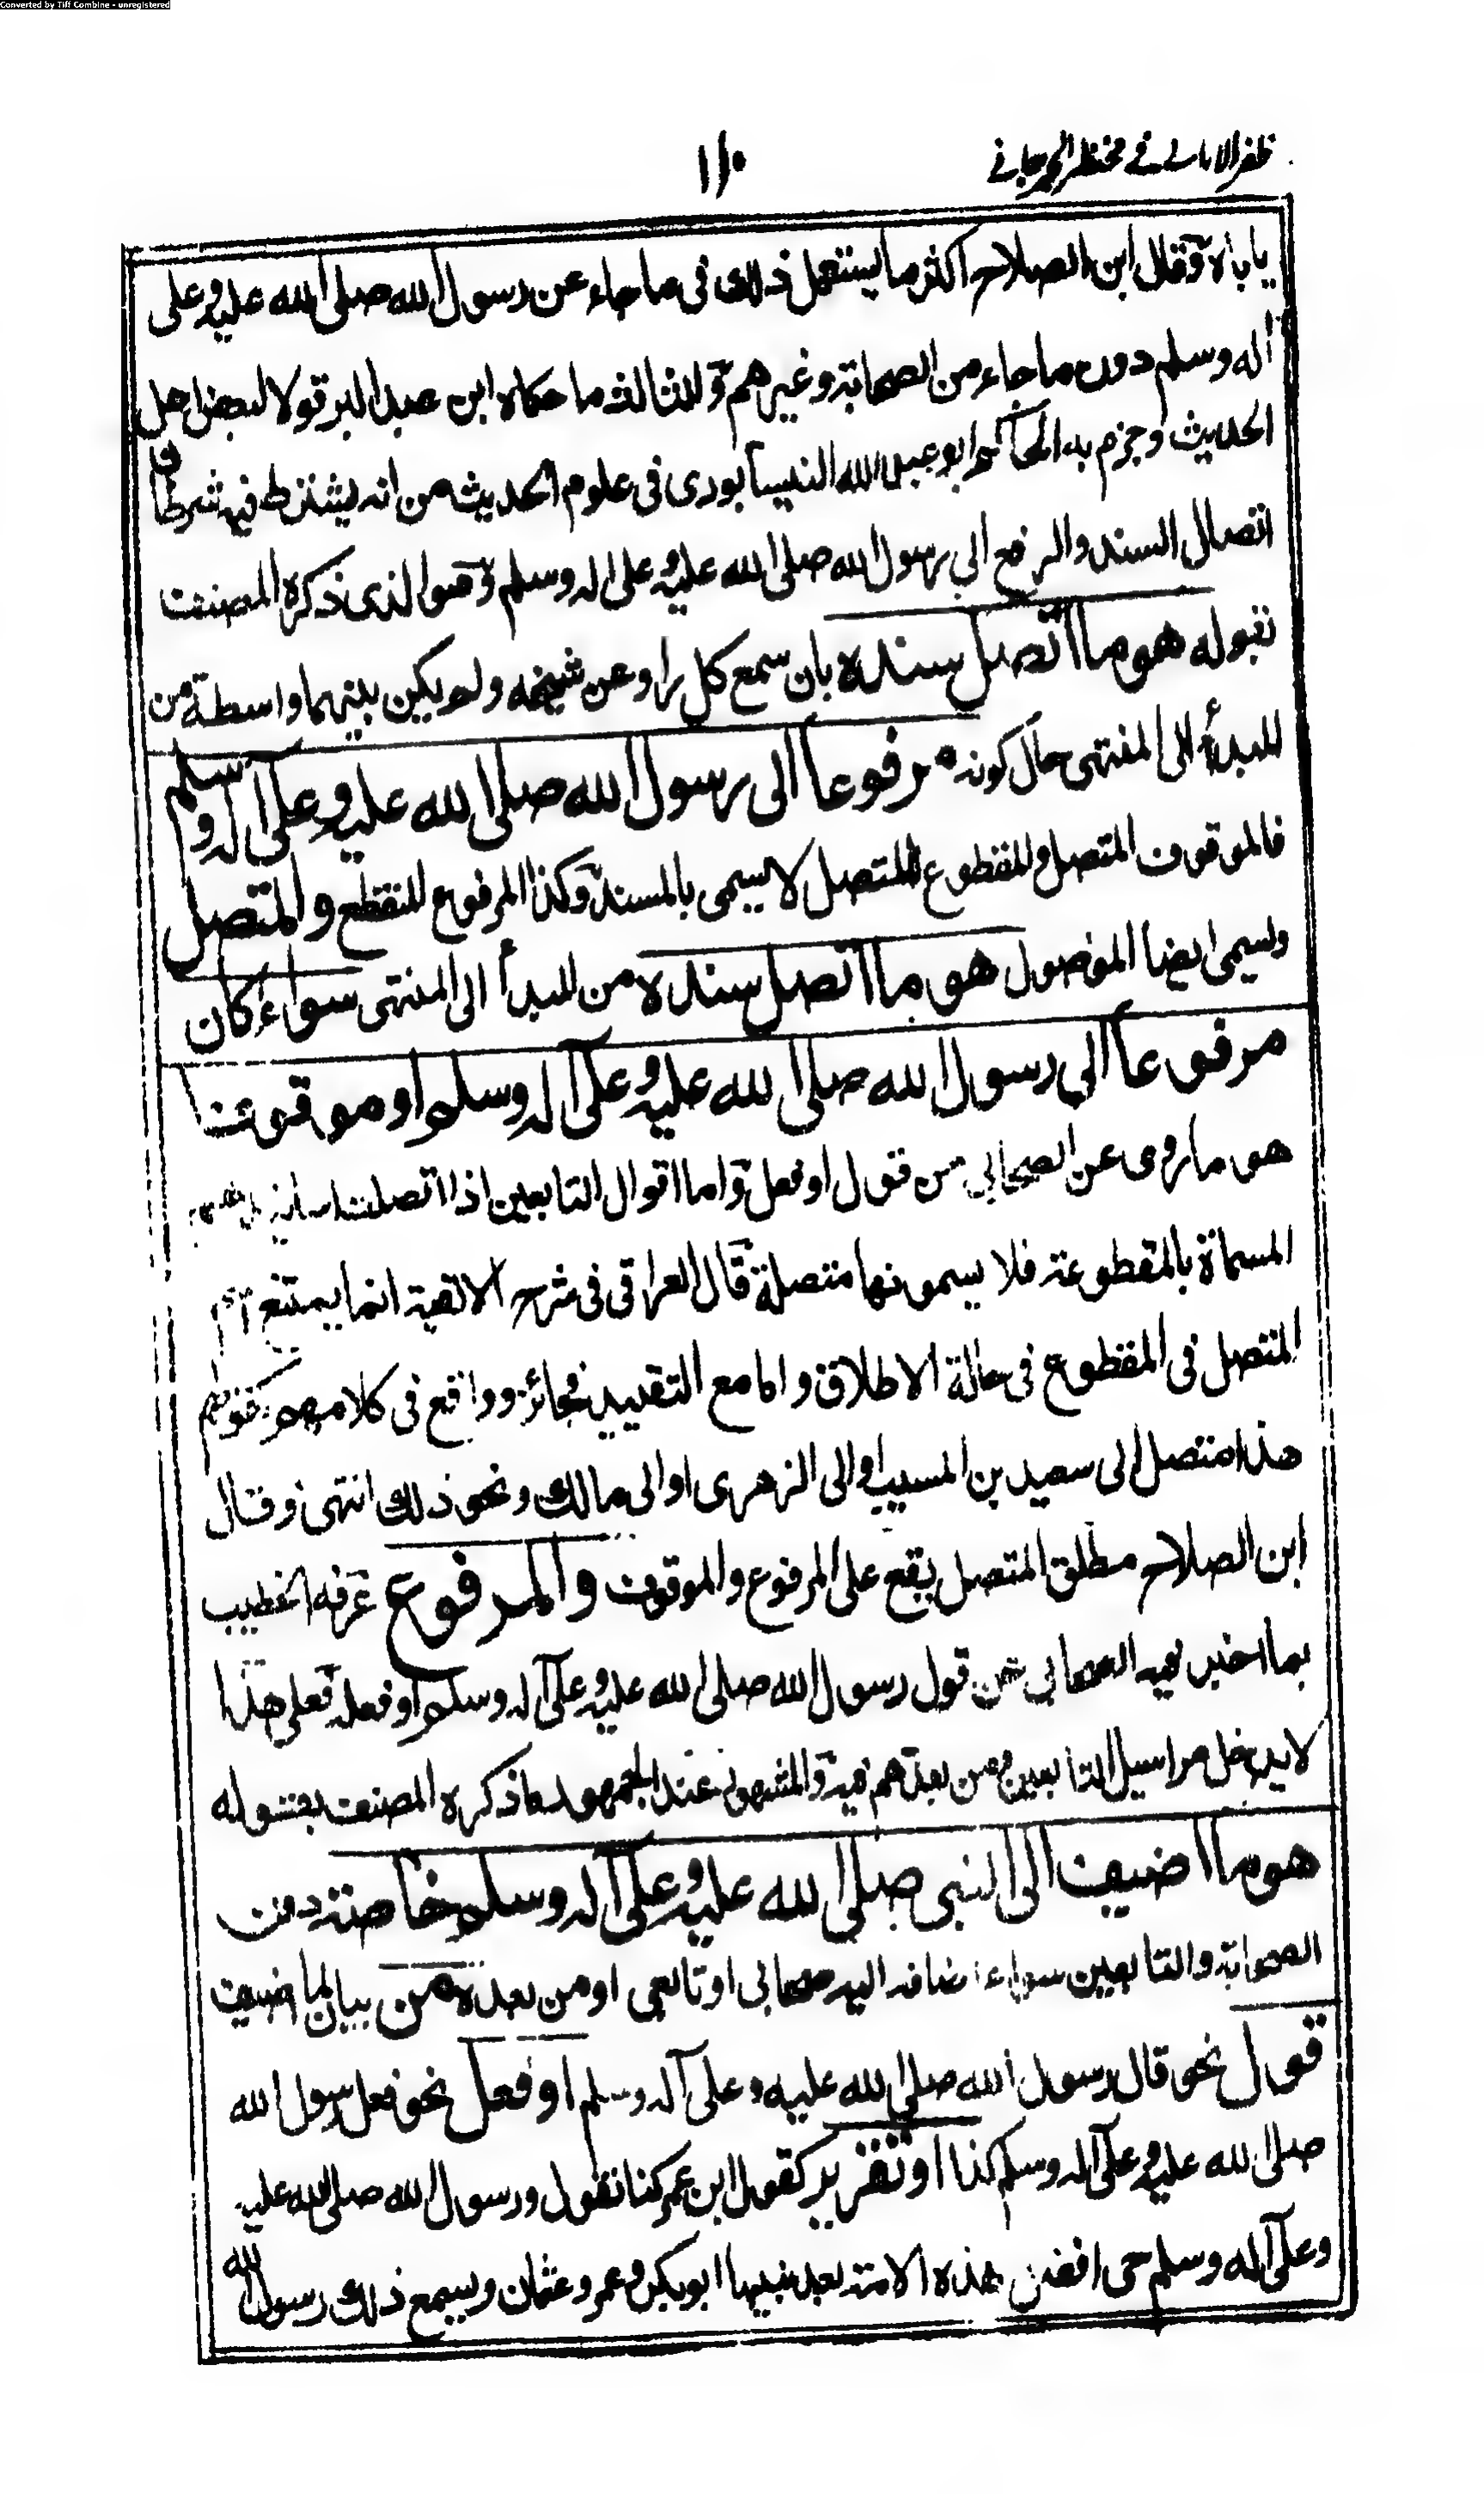 Converted by Tiff Combine - unregistered
ظفر الامانے فے مختصر الجرجانے
١١٠
ياباه وقال ابن الصلاح اكثر ما يستعمل ذلك فى ما جاء عن رسول الله صلى الله عليه وعلى
آله وسلم دون ما جاء من الصحابة وغيرهم والثالث ما حكاه ابن عبد البر قولا لبعض اهل
الحديث وجزم به الحاكم ابو عبد الله النيسابورى فى علوم الحديث من انه يشترط فيه شرطان
اتصال السند والرفع الى رسول الله صلى الله عليه وعلى اله وسلم وهو الذى ذكره المصنف
بقوله هو ما اتصل سنده بان سمع كل راو عن شيخه ولم يكن بينهما واسطة من
المبدأ الى المنتهى حال كونه مرفوعا الى رسول الله صلى الله عليه وعلى آله وسلم
فالموقوف المتصل والمقطوع المتصل لا يسمى بالمسند وكذا المرفوع المنقطع والمتصل
ويسمى ايضا الموصول هو ما اتصل سنده من المبدأ الى المنتهى سواء كان
مرفوعا الى رسول الله صلى الله عليه وعلى آله وسلم او موقوفا
هو ما روى عن الصحابي من قول او فعل واما اقوال التابعين اذا اتصلت اسانيد
المسماة بالمقطوعة فلا يسمونها متصلة قال العراقى فى شرح الالفية انما يمتنع اسم
المتصل فى المقطوع فى حالة الاطلاق واما مع التقييد فجائز وواقع فى كلامهم كقولهم
هذا متصل الى سعيد بن المسيب او الى الزهرى او الى مالك ونحو ذلك انتهى وقال
ابن الصلاح مطلق المتصل يقع على المرفوع والموقوف والمرفوع عرفه الخطيب
بما اخبر فيه الصحابي عن قول رسول الله صلى الله عليه وعلى آله وسلم او فعله فعلى هذا
لا يدخل مراسيل التابعين ومن بعدهم فيه والمشهور عند الجمهور ما ذكره المصنف بقوله
هو ما اضيف الى النبي صلى الله عليه وعلى آله وسلم خاصة دون
الصحابة والتابعين سواء اضافه اليه صحابى او تابعى او من بعده من بيان لما اضيف
قول نحو قال رسول الله صلى الله عليه وعلى آله وسلم او فعل نحو فعل رسول الله
صلى الله عليه وعلى آله وسلم كذا او تقرير كقول ابن عمر كنا نقول ورسول الله صلى الله عليه
وعلى آله وسلم حى افضل هذه الامة بعد نبيها ابو بكر وعمر وعثمان ويسمع ذلك رسول الله